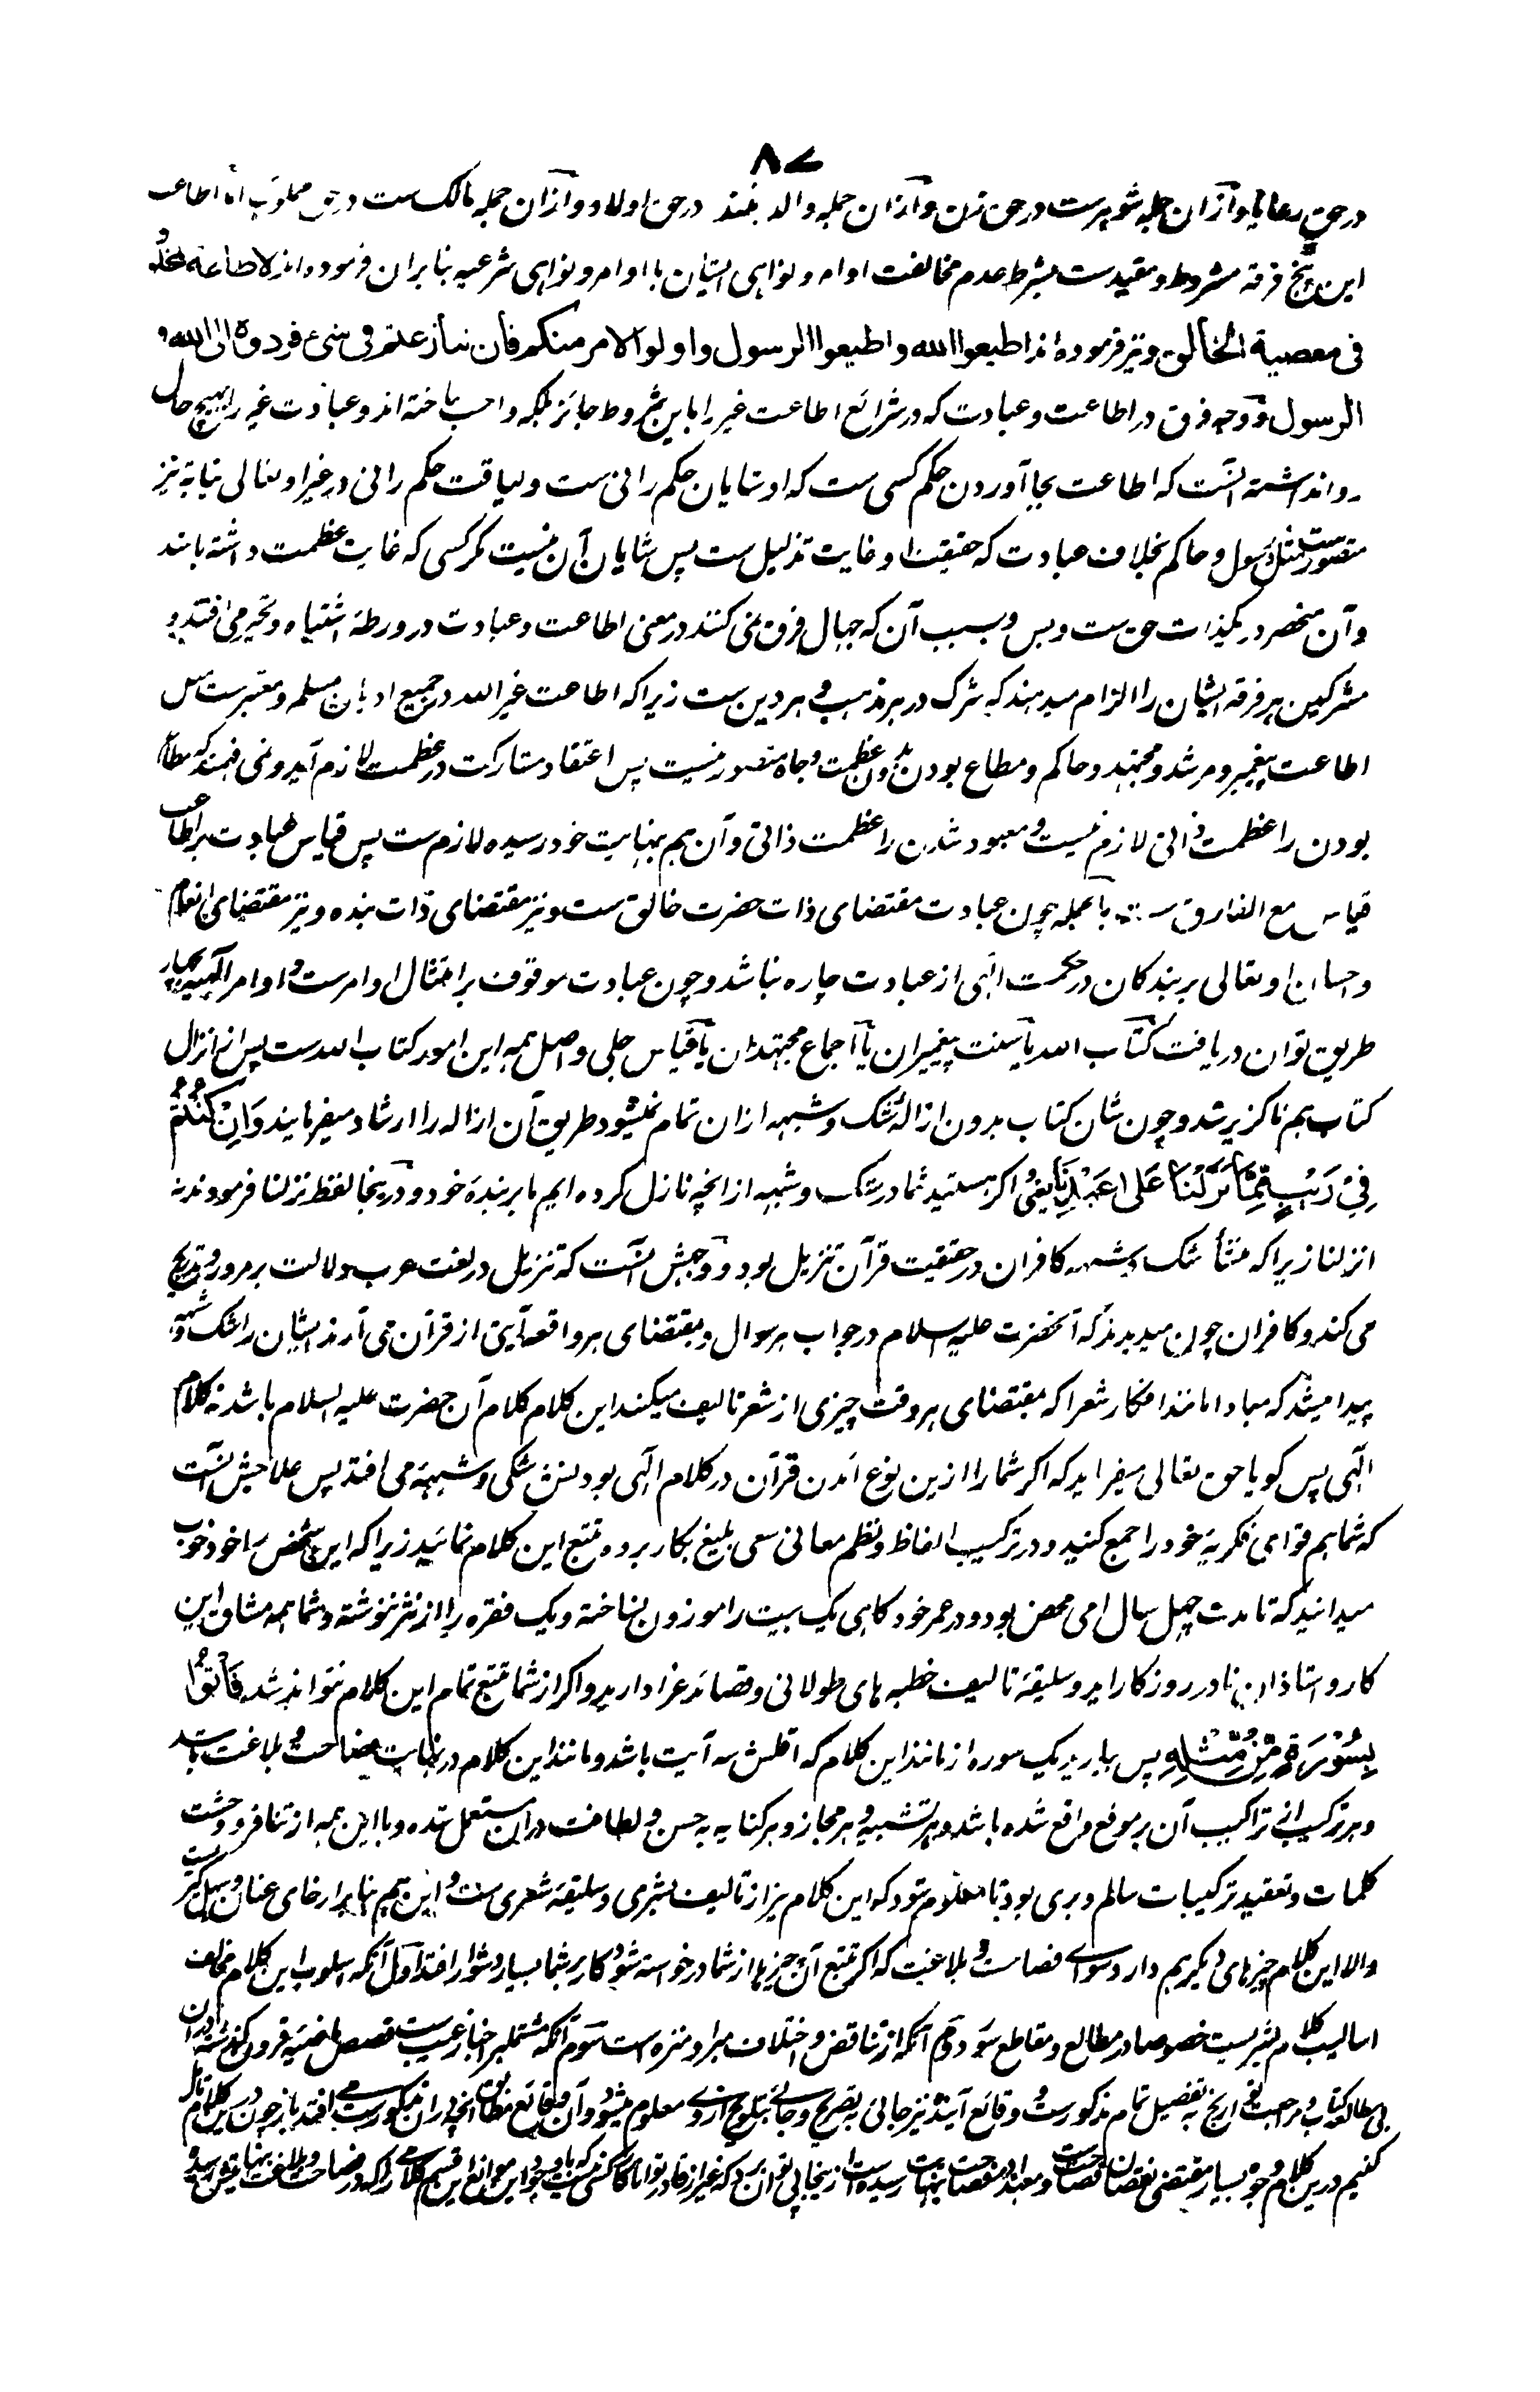 ۸۷
در حق رعایا و ازان جمله شوهرست در حق زن و ازان جمله والد در حق اولاد و ازان جمله مالک ست در حق مملوک اما اطاعت
این پنج فرقه مشروط و مقیدست بشرط عدم مخالفت اوامر و نواهی ایشان با اوامر و نواهی شرعیه بنابران فرموده اند لا طاعة لمخلوق
فی معصیة الخالق و نیز فرموده اند اطیعوا الله و اطیعوا الرسول و اولو الامر منکم فان تنازعتم فی شیء فردوه الی الله و
الرسول و وجه فرق در اطاعت و عبادت که در شرائع اطاعت غیر را باین شروط جائز بلکه واجب ساخته اند و عبادت غیر را بهیچ حال
روا نداشته آنست که اطاعت بجا آوردن حکم کسی ست که او شایان حکم رانی ست و لیاقت حکم رانی در غیر او تعالی نیابة نیز
متصورست مثل رسول و حاکم بخلاف عبادت که حقیقت او غایت تذلیل ست پس شایان آن نیست مگر کسی که غایت عظمت داشته باشد
و آن منحصر در یکذات حق ست و بس و بسبب آن که جهال فرق نمی کنند در معنی اطاعت و عبادت در ورطۀ اشتباه و تحیر می افتند و
مشرکین هر فرقه ایشان را الزام میدهند که شرک در هر مذهب و هر دین ست زیرا که اطاعت غیر الله در جمیع ادیان مسلم و معتبرست مثل
اطاعت پیغمبر و مرشد و مجتهد و حاکم و مطاع بودن بدون عظمت و جاه متصور نیست پس اعتقاد مشارکت در عظمت لازم آید و نمی فهمند که مطاع
بودن را عظمت ذاتی لازم نیست و معبود شدن را عظمت ذاتی و آن هم بنهایت خود رسیده لازم ست پس قیاس عبادت بر اطاعت
قیاس مع الفارق ست بالجمله چون عبادت مقتضای ذات حضرت خالق ست و نیز مقتضای ذات بنده و نیز مقتضای انعام
و احسان او تعالی بر بندگان در حکمت الهی از عبادت چاره نباشد و چون عبادت موقوف بر امتثال اوامرست و اوامر الهیه بچهار
طریق توان دریافت کتاب الله یا سنت پیغمبران یا اجماع مجتهدان یا قیاس جلی و اصل همه این امور کتاب الله ست پس از انزال
کتاب هم ناگزیر شد و چون شان کتاب بدون ازالۀ شک و شبهه ازان تمام نمیشود طریق آن ازاله را ارشاد میفرمایند وَاِنْ كُنْتُمْ
فِيْ رَيْبٍ مِّمَّا نَزَّلْنَا عَلٰى عَبْدِنَا یعنی اگر هستید شما در شک و شبهه از انچه نازل کرده ایم ما بر بندۀ خود و درینجا لفظ نزلنا فرمودند نه
انزلنا زیرا که منشأ شک و شبهه کافران در حقیقت قرآن تنزیل بود و وجهش آنست که تنزیل در لغت عرب دلالت بر مرور و تدریج
می کند و کافران چون میدیدند که آنحضرت علیه السلام در جواب هر سوال و بمقتضای هر واقعه آیتی از قرآن می آرند ایشان را شک و شبهه
پیدا میشد که مبادا مانند افکار شعرا که بمقتضای هر وقت چیزی از شعر تالیف میکنند این کلام کلام آن حضرت علیه السلام باشد نه کلام
الهی پس گویا حق تعالی میفراید که اگر شما را ازین نوع آمدن قرآن در کلام الهی بودنش شکی و شبهۀ می افتد پس علاجش آنست
که شما هم قوای فکریۀ خود را جمع کنید و در ترکیب الفاظ و نظم معانی سعی بلیغ بکار برده تتبع این کلام نمائید زیرا که این شخص را خود خوب
میدانید که تا مدت چهل سال امی محض بود و در عمر خود گاهی یک بیت را موزون نساخته و یک فقره را از نثر ننوشته و شما همه مشاق این
کار و استاذان نادر روزگار اید و سلیقۀ تالیف خطبه های طولانی و قصائد غرا دارید و اگر از شما تتبع تمام این کلام نتواند شد فَأْتُوْا
بِسُوْرَةٍ مِّنْ مِّثْلِهٖ پس بیارید یک سوره از مانند این کلام که اقلش سه آیت باشد و مانند این کلام در نهایت فصاحت و بلاغت باشد
و هر ترکیب از تراکیب آن بر موقع واقع شده باشد و هر تشبیه و هر مجاز و هر کنایه به حسن و لطافت دران مستعمل شده و با این همه از تنافر و وحشت
کلمات و تعقید ترکیبات سالم و بری بود تا معلوم شود که این کلام نیز از تالیف بشری و سلیقۀ شعری ست و این هم بنابر ارخای عنان و سهل گیری ست
والا این کلام چیزهای دیگر هم دارد سوای فصاحت و بلاغت که اگر تتبع آن چیزها از شما درخواسته شود کار بر شما بسیار دشوار افتد اول آنکه اسلوب این کلام مخالف
اسالیب کلام بشریست خصوصا در مطالع و مقاطع سور دوم آنکه از تناقض و اختلاف مبرا و منزه است سوم آنکه مشتمل بر اخبار غیب ست قصص ماضیه قرون گذشته دران
بی مطالعه کتاب و مراجعت تاریخ به تفصیل تمام مذکورست و وقائع آینده نیز جائی به تصریح و جائی بتلویح ازوی معلوم میشود و آن وقائع مطابق انچه دران مذکورست می افتد باز چون درین کلام تامل
کنیم درین کلام وجوه بسیار مقتضی نقصان فصاحت ست و معهذا در فصاحت بنهایت رسیده است ازینجا پی توان برد که غیر از قادر توانا کار کسی نیست که با وجود این موانع این قسم کلامی را که در فصاحت و بلاغت بنهایتش رسیده